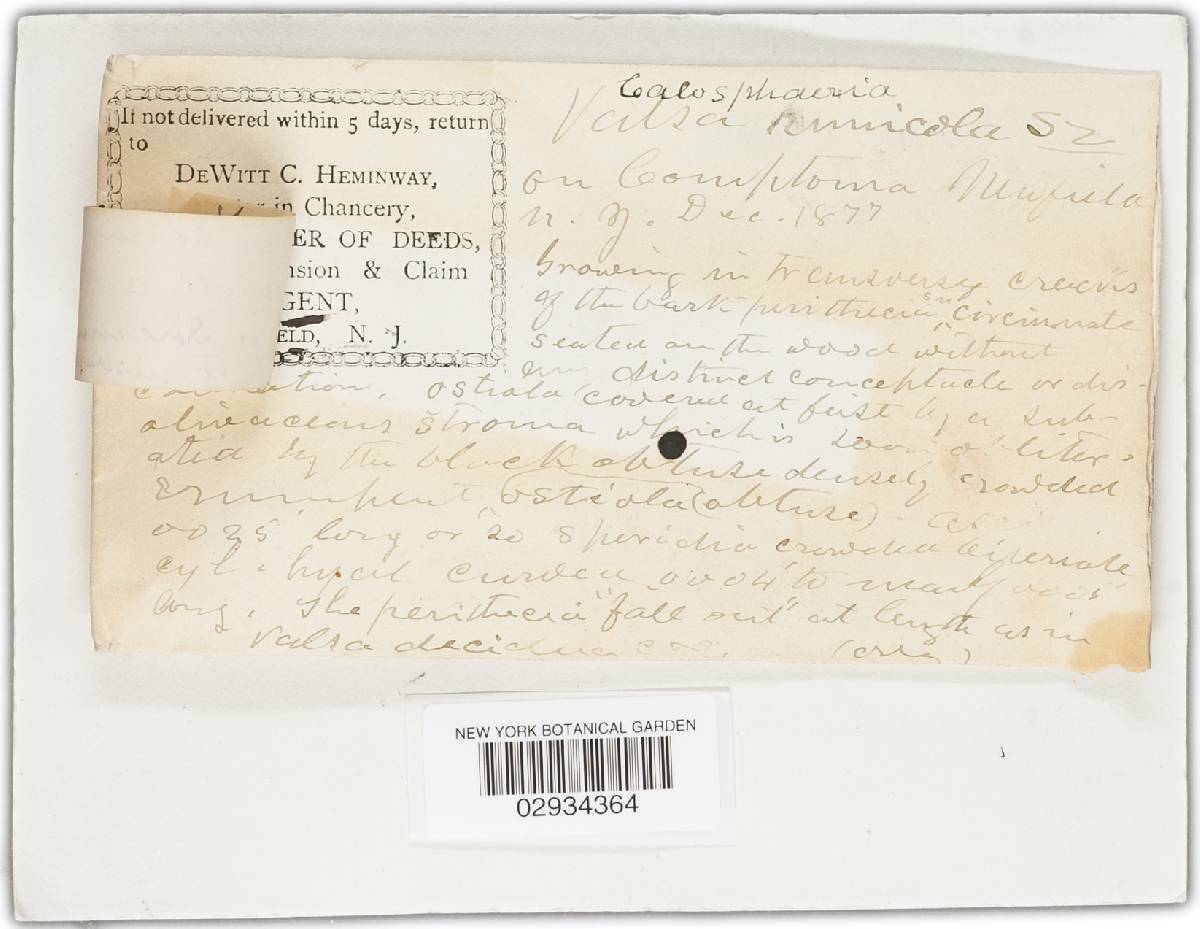 If not delivered within 5 days, return
to
DEWITT C. HEMINWAY,
in Chancery,
ER OF DEEDS,
nsion & Claim
GENT,
ELD, N. J.
Calosphaeria
Valsa Sz
on Comptonia
N. J. Dec. 1877
Growing in transverse
of the bark perithecia circinnate
seated on the wood without
any distinct conceptacle or dis-
ostiola covered at first by a sub-
olivaceous stroma which is soon obliter-
ated by the black obtuse densely crowded
erumpent ostiola (obtuse). asci
long or so sporidia crowded biseriate
cyl. hyal curved to
long. The perithecia "fall out" at length as in
Valsa decidua
NEW YORK BOTANICAL GARDEN
02934364